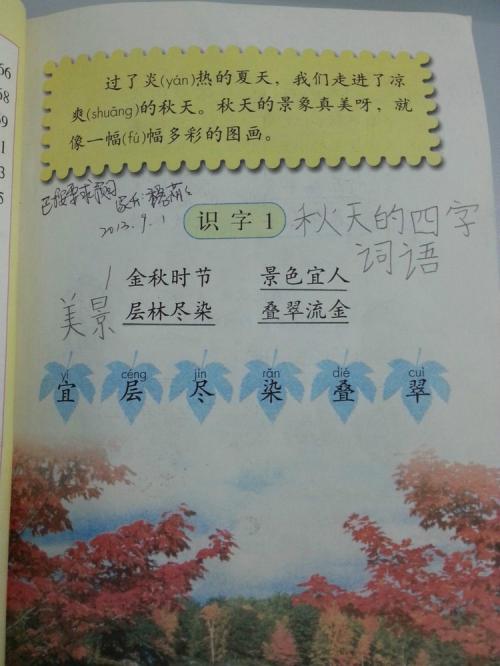 过了炎(yán)热的夏天，我们走进了凉
爽(shuāng)的秋天。秋天的景象真美呀，就
像一幅(fú)幅多彩的图画。
2013.9.1
识字1
秋天的四字
词语
金秋时节 景色宜人
美景
层林尽染 叠翠流金
yí céng jìn rǎn dié cuì
宜 层 尽 染 叠 翠